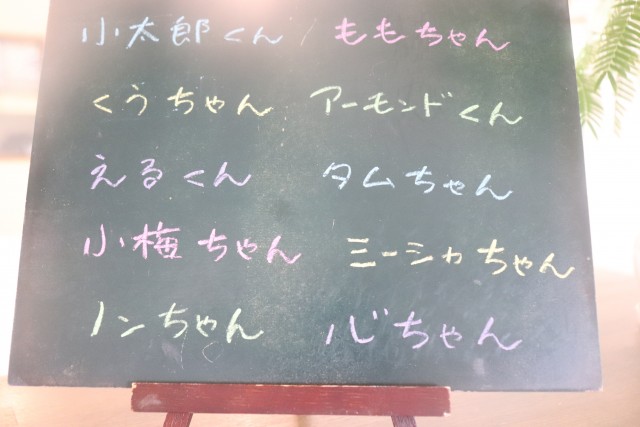 小太郎くん / ももちゃん
くうちゃん アーモンドくん
えるくん タムちゃん
小梅ちゃん ミーシャちゃん
ノンちゃん 心ちゃん